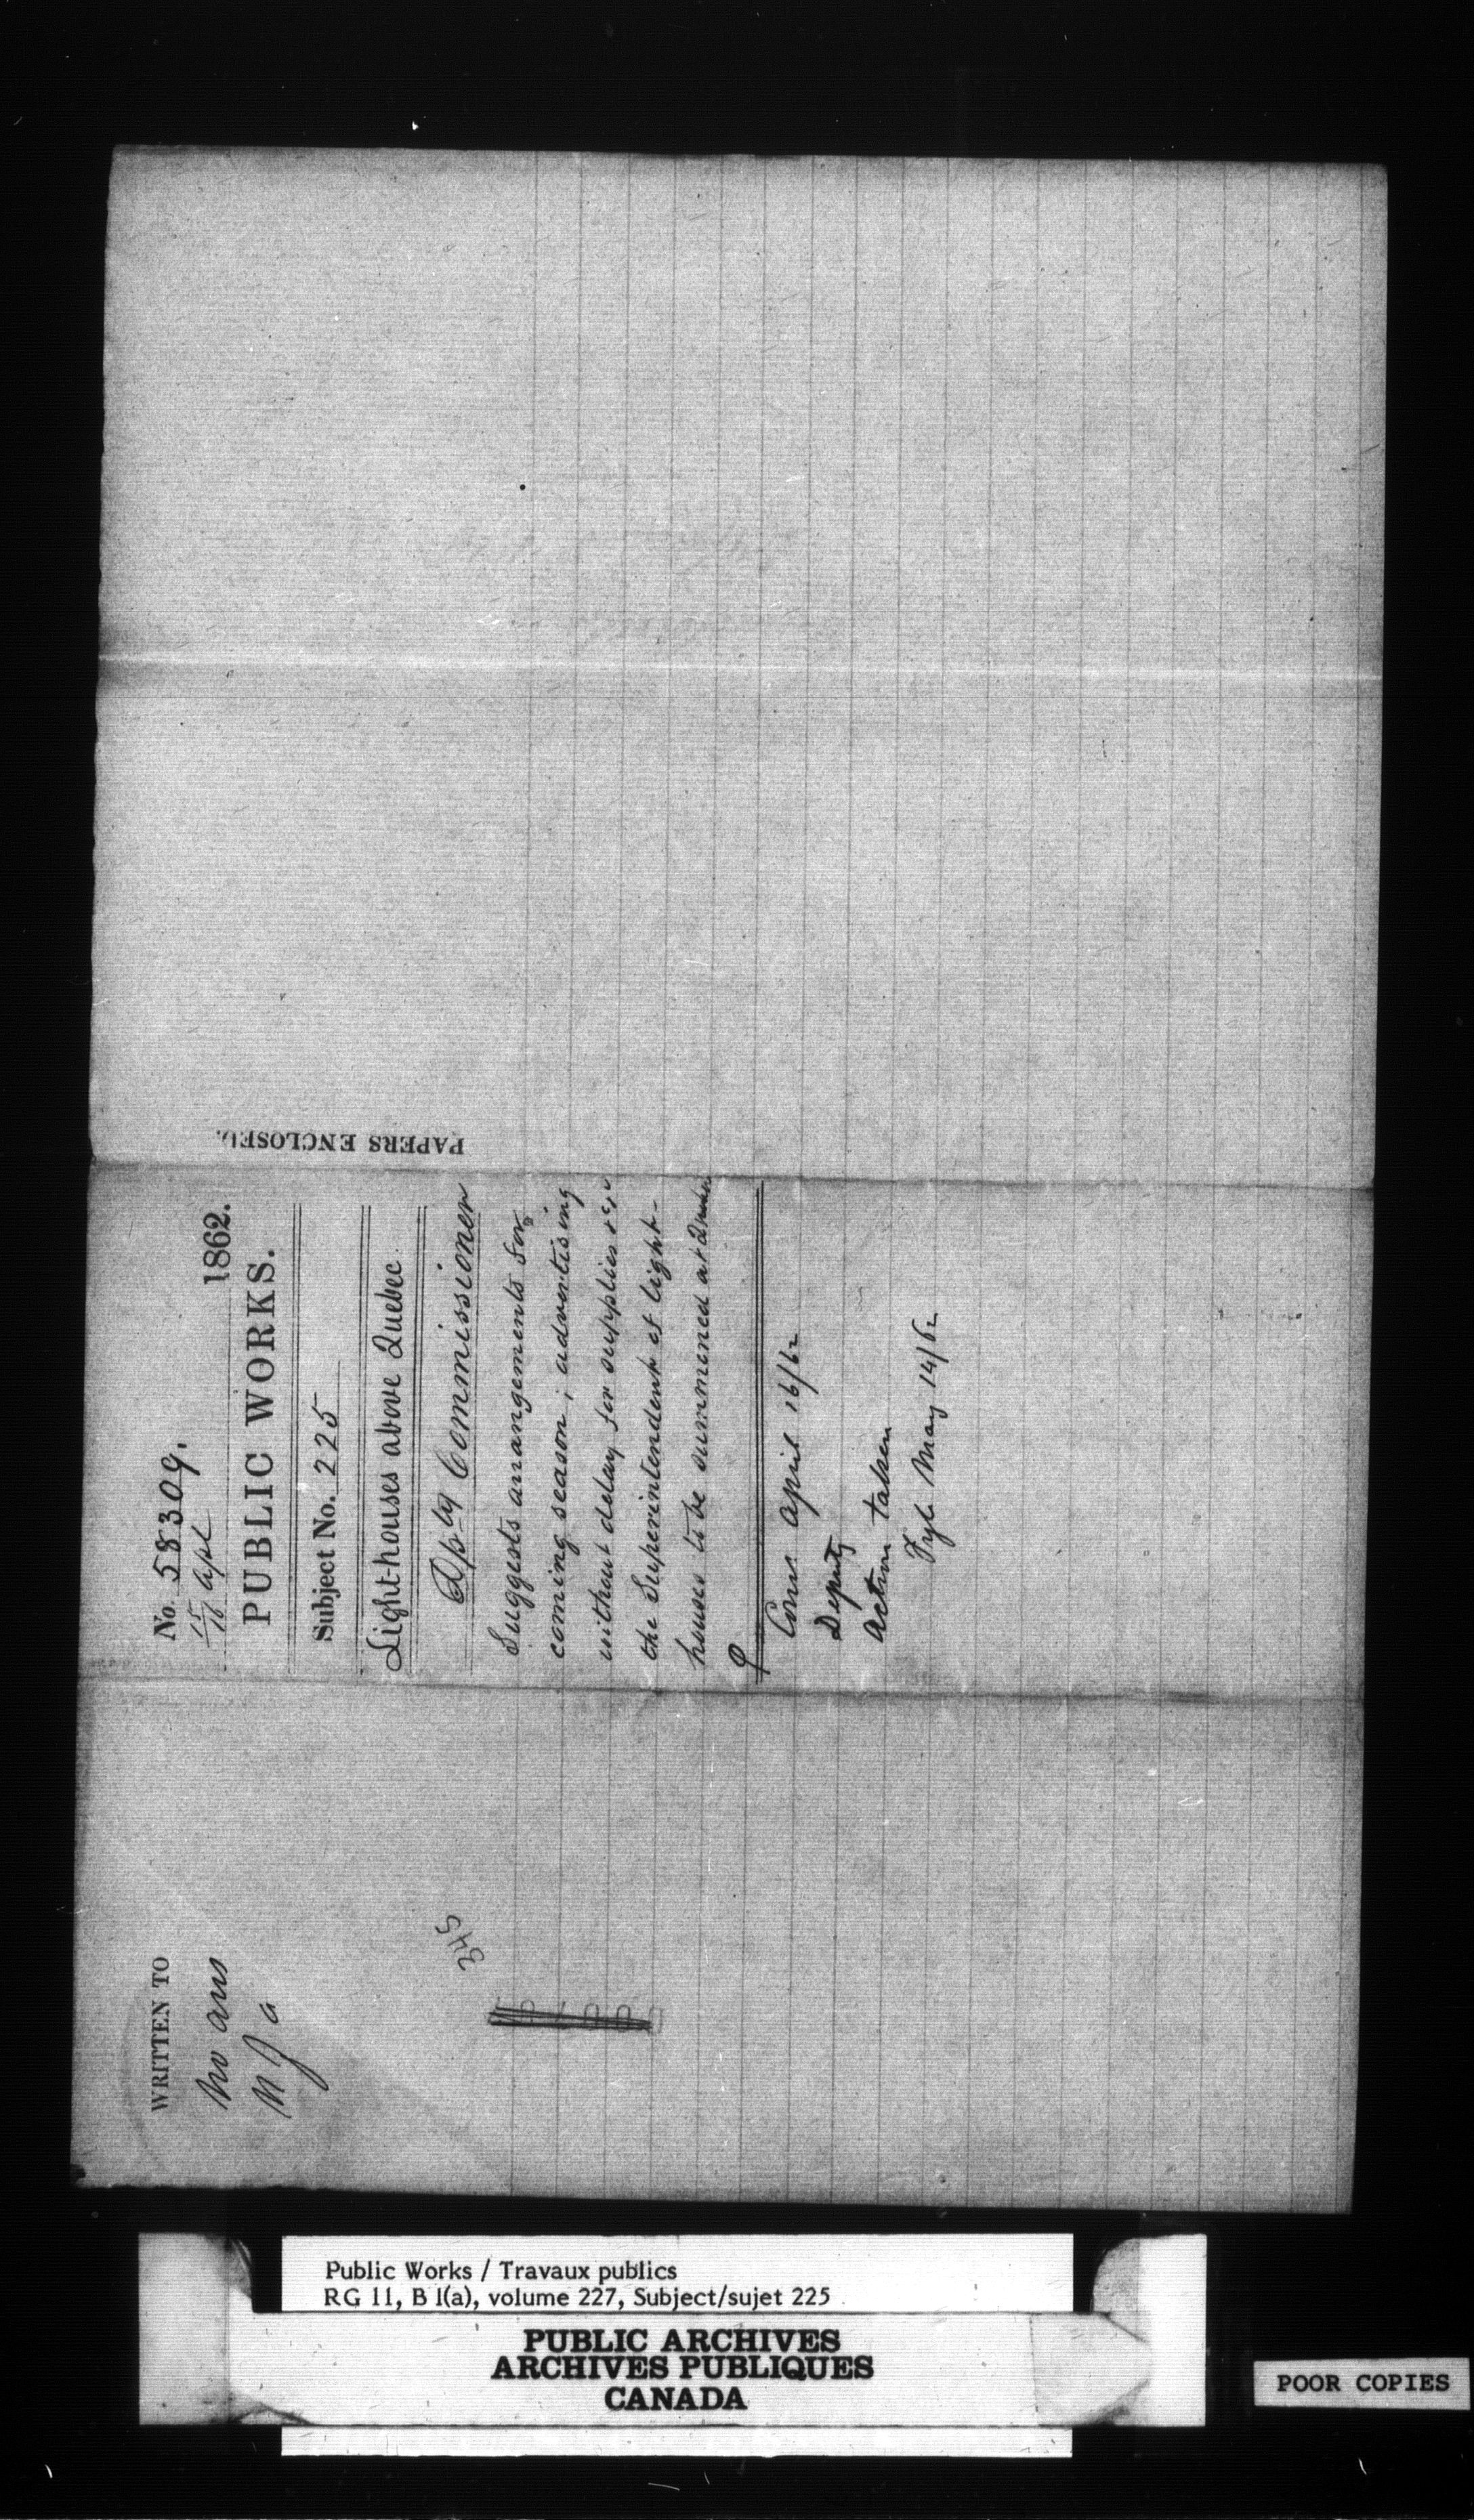 WRITTEN TO
No ans
345
No. 58309.
15 Apl
1862.
PUBLIC WORKS.
Subject No. 225
Light-houses above Quebec
Dpty Commissioner
Suggests arrangements for
coming season; advertising
without delay for supplies &c, &
the Superintendent of light-
houses to be summoned at
Com April 16/62
Deputy
Action taken
May 14/62
PAPERS ENCLOSED.
Public Works / Travaux publics
RG 11, B 1(a), volume 227, Subject/sujet 225
PUBLIC ARCHIVES
ARCHIVES PUBLIQUES
CANADA
POOR COPIES